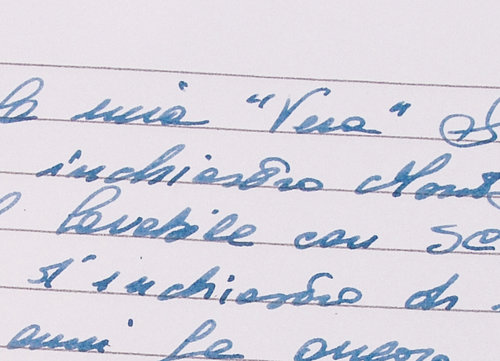 la mia "Vera" S
inchiostro Mont
lavabile con sc
d'inchiostro di
anni fa